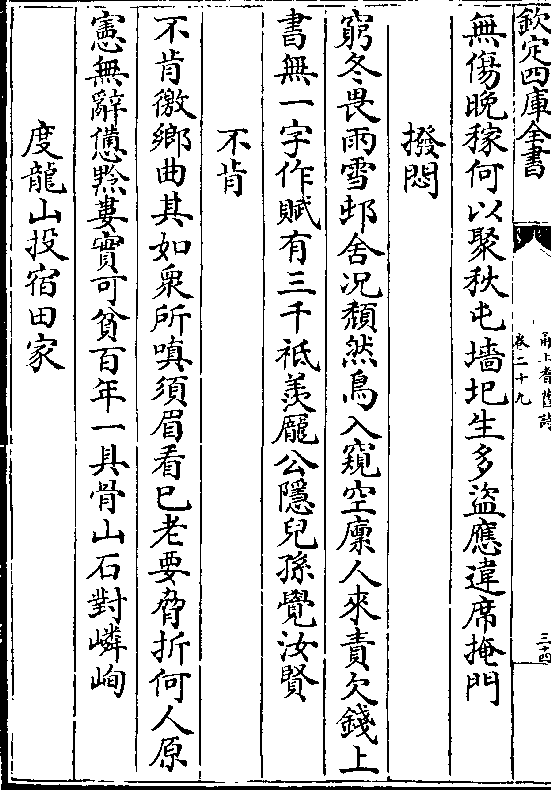 欽定四庫全書
甬上耆舊詩
卷二十九
三十四
無傷晚稼何以聚秋屯墻圯生多盜應違席掩門
撥悶
窮冬畏雨雪邨舍况頽然鳥入窺空廩人來責欠錢上
書無一字作賦有三千祗羨龎公隱兒孫覺汝賢
不肯
不肯徼鄉曲其如衆所嗔須眉看已老要脅折何人原
憲無辭憊黔婁實可貧百年一具骨山石對嶙峋
度龍山投宿田家